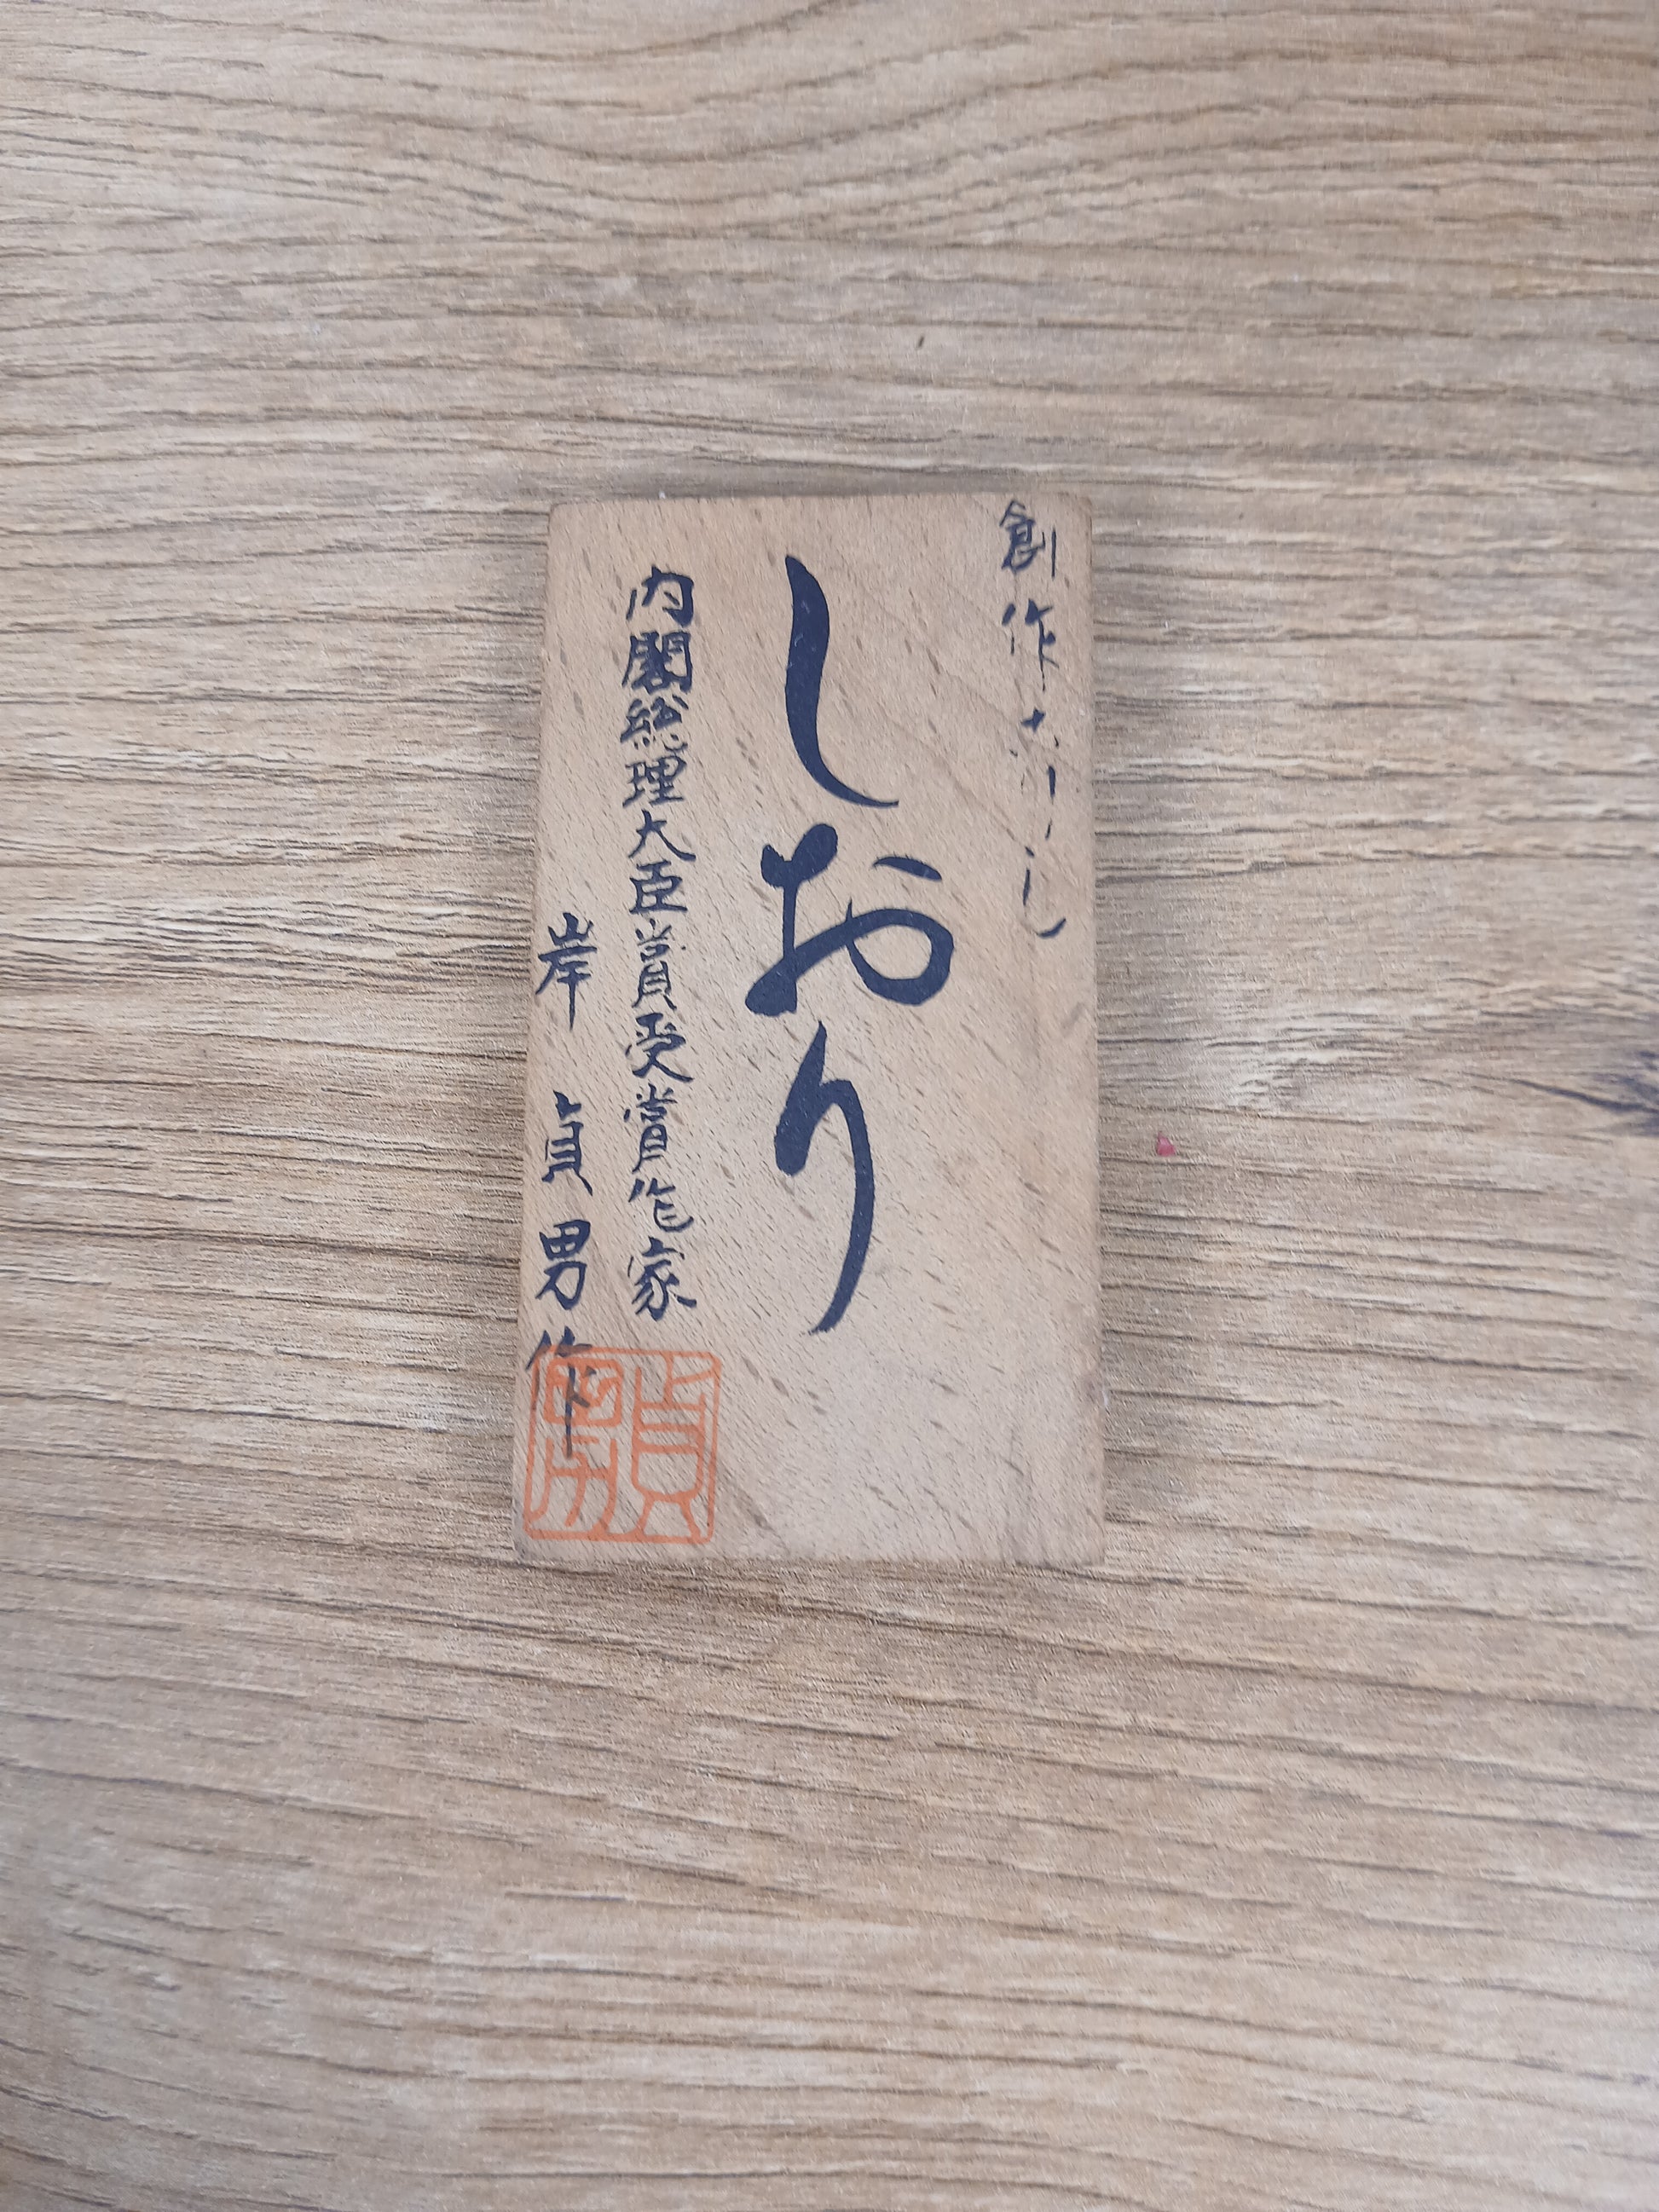 創作こけし
しおり
内閣総理大臣賞受賞作家
岸貞男作
貞男